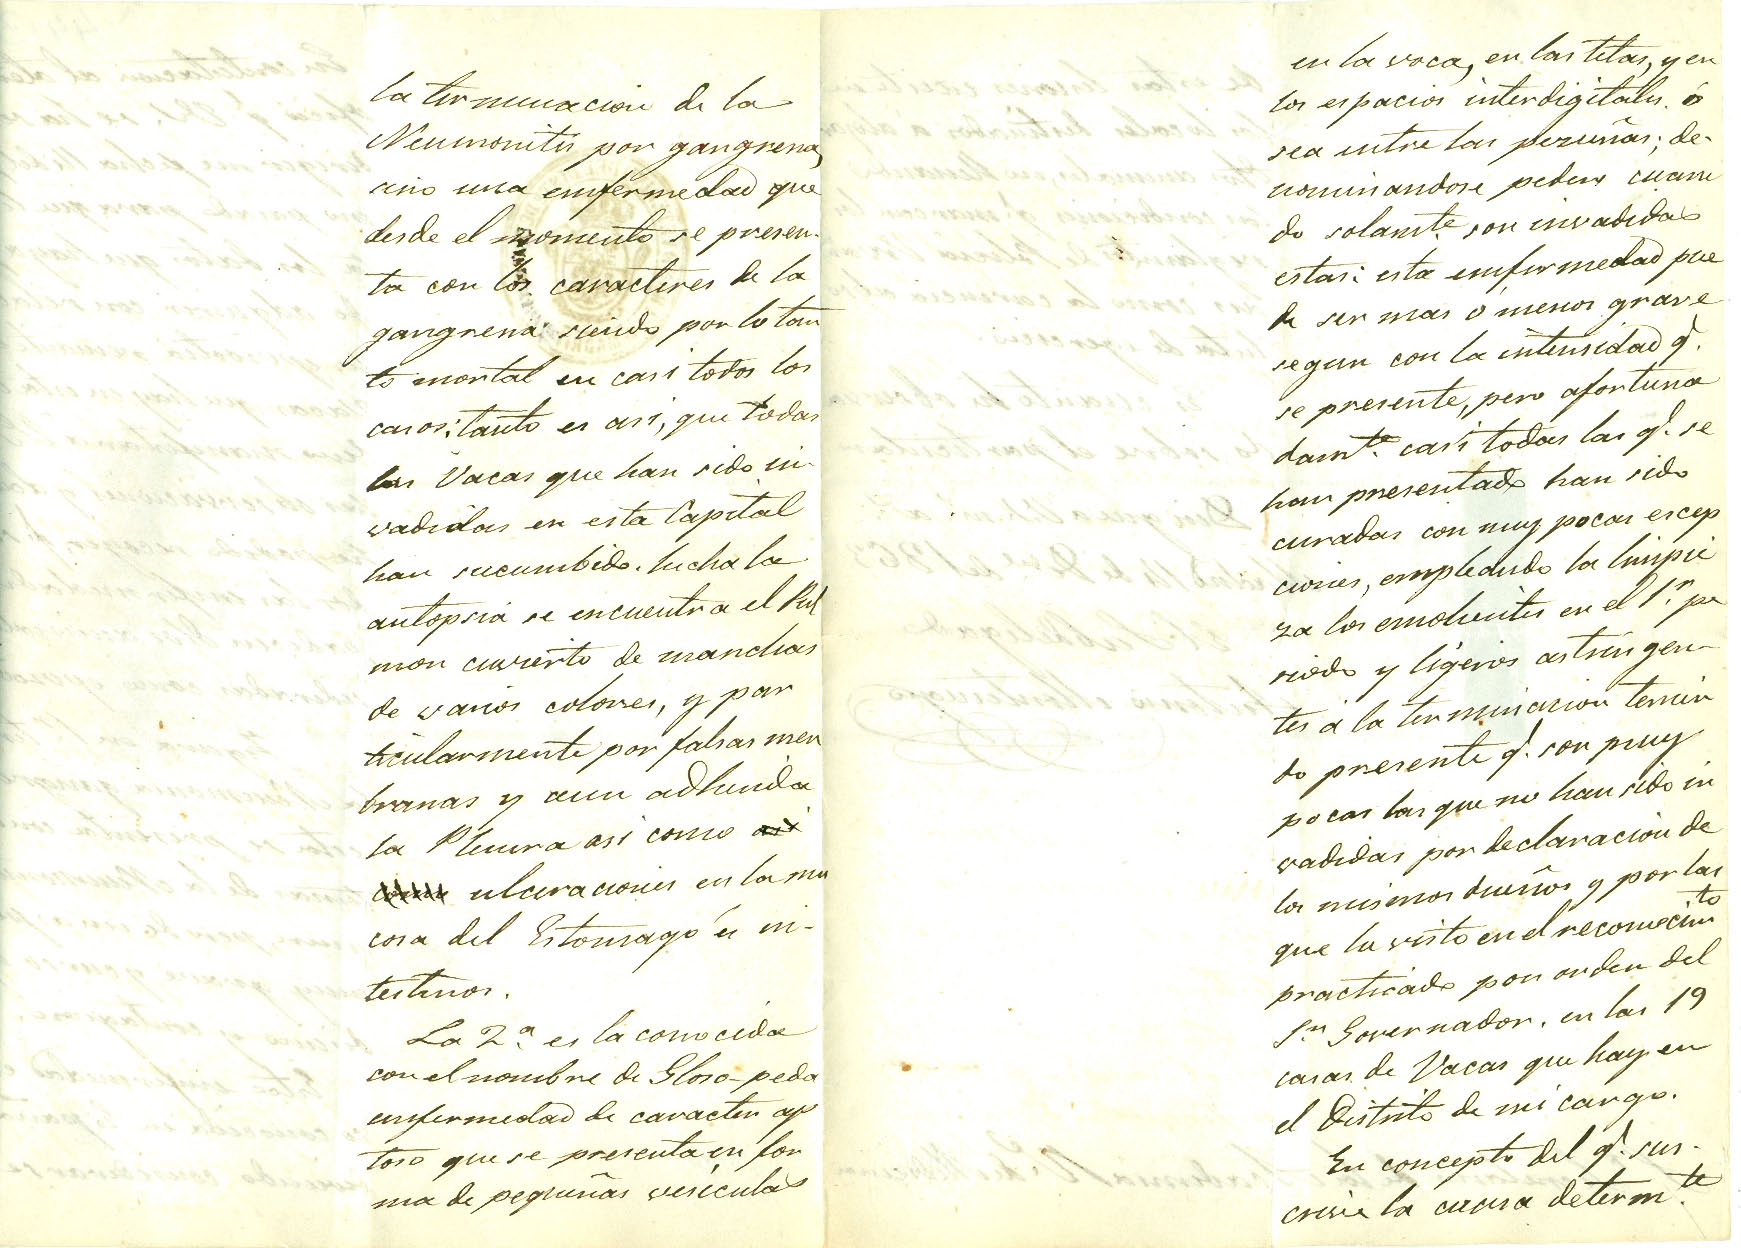 la terminacion de la
Neumonitis por gangrena,
sino una enfermedad que
desde el momento se presen-
ta con los caracteres de la
gangrena: siendo por lo tan
to mortal en casi todos los
casos; tanto es asi, que todas
las Vacas que han sido in-
vadidas en esta Capital
han sucumbido. hecha la
autopsia se encuentra el Pul
mon cuvierto de manchas
de varios colores, y par
ticularmente por falsas mem
branas y aun adherida
la Pleura asi como asi
como ulceraciones en la mu
cosa del Estomago é in-
testinos.
La 2.ª es la conocida
con el nombre de Gloso-peda
enfermedad de caracter af
toso que se presenta en for
ma de pequeñas vesiculas
en la voca, en las tetas, y en
los espacios interdigitales. ó
sea entre las pezuñas; de-
nominandose pedero cuan
do solam.te son invadidas
estas: esta enfermedad pue
de ser mas ó menos grave
segun con la intensidad q.
se presente, pero afortuna
dam.te casi todas las q. se
han presentado han sido
curadas con muy pocas escep
ciones, empleando la limpie
za los emolientes en el 1.r pe
riodo y ligeros astringen-
tes á la terminacion tenien
do presente q. son muy
pocas las que no han sido in
vadidas por declaracion de
los mismos dueños y por las
que he visto en el reconocim.to
practicado por orden del
S.r Governador. en las 19
casas de Vacas que hay en
el Distrito de mi cargo.
En concepto del q. sus-
crive la causa determ.te